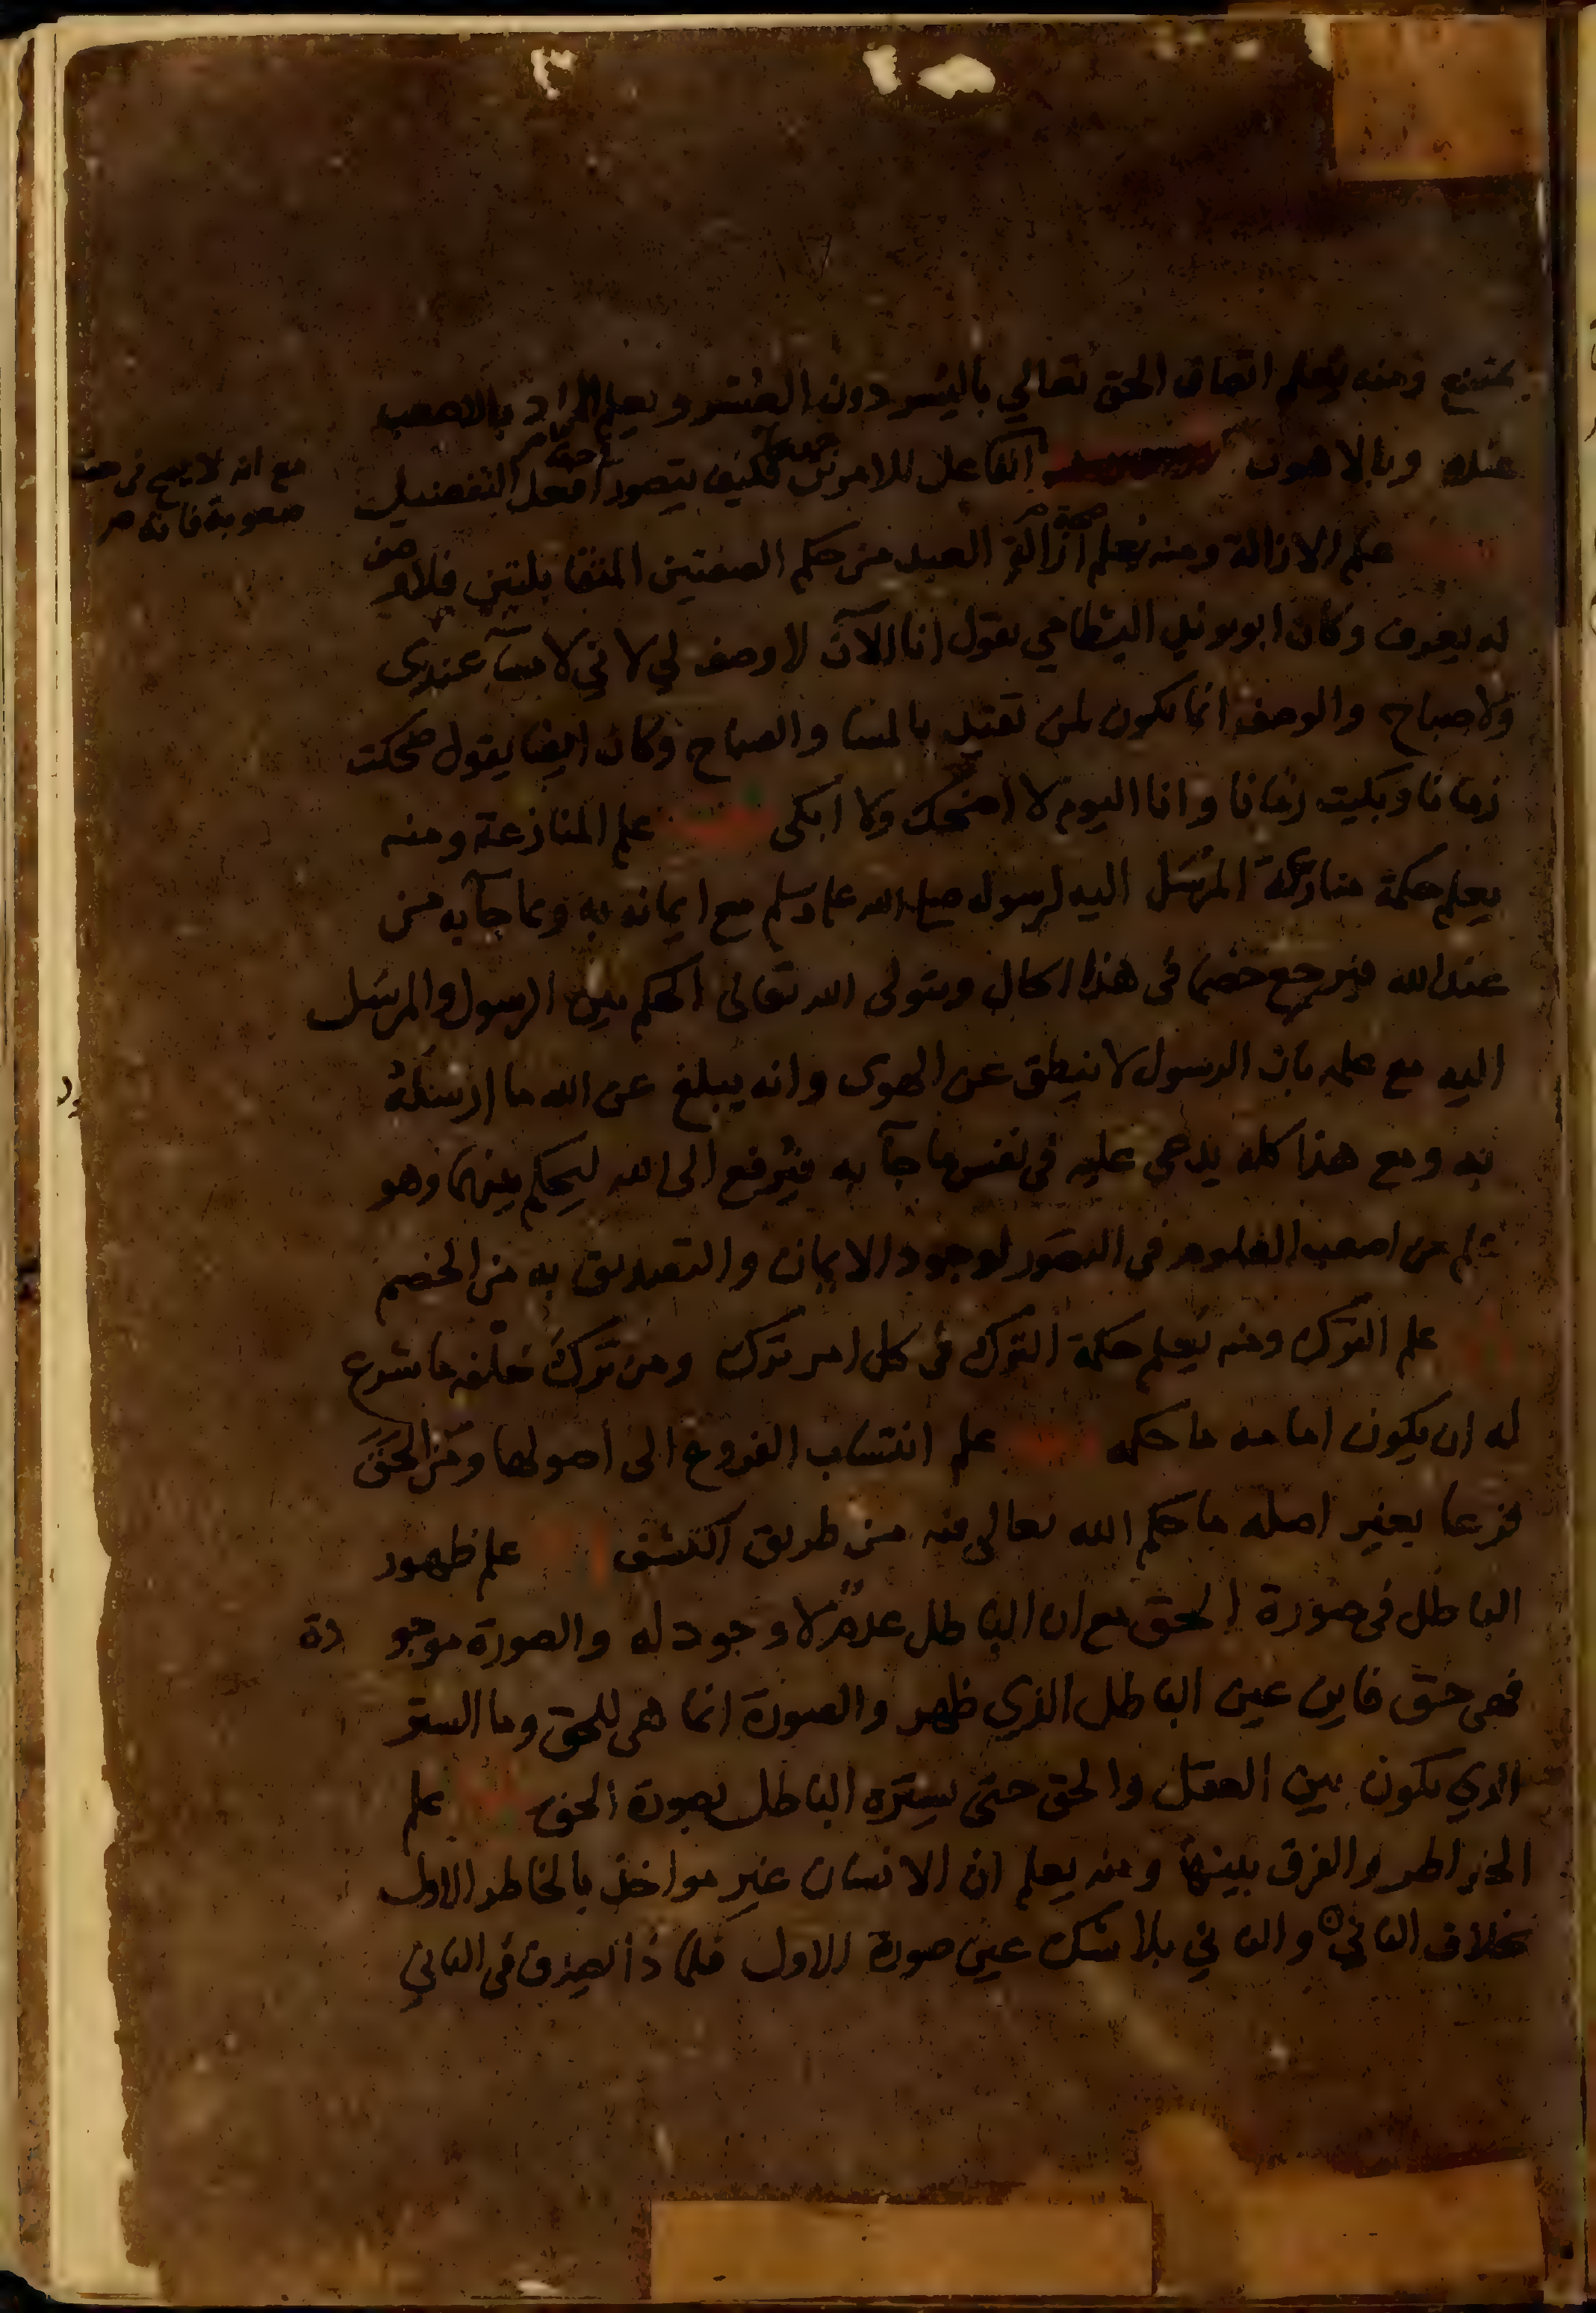 يمتنع ومنه يعلم اتصاف الحق تعالي باليسر دون العسر ويعلم المراد بالاصعب
عنده وبالاهون الفاعل للامرين فكيف يتصور افعل التفضيل
مع انه لا يصح في حقه
صعوبة فانه
علم الازالة ومنه يعلم ازالة العبد من حكم الصفتين المتقابلتين فلا وصف
له يعرف وكان ابو يزيد البسطامي يقول انا الآن لا وصف لي لاني لا مسآ عندي
ولا صباح والوصف انما يكون لمن تقيد بالمسا والصباح وكان ايضا يقول ضحكت
زمانا وبكيت زمانا وانا اليوم لا اضحك ولا ابكي علم المنازعة ومنه
يعلم حكمة منازعة المرسَل اليه لرسوله صلى الله عليه وسلم مع ايمانه به وبما جآ به من
عند الله فيرجع خصما في هذا الحال ويتولى الله تعالى الحكم بين الرسول والمرسَل
اليه مع علمه بان الرسول لا ينطق عن الهوى وانه يبلغ عن الله ما ارسله
به ومع هذا كله يدعي عليه في نفس ما جآ به فيُرفع الى الله ليحكم بينهما وهو
علم من اصعب العلوم في التصور لوجود الايمان والتصديق به من الخصم
علم الترك ومنه يعلم حكمة الترك في كل امر ترك ومن ترك خلفه ما شرع
له ان يكون امامه ما حكمه علم انتساب الفروع الى أصولها ومن الحق
فرعا بغير اصله ما حكم الله تعالى فيه من طريق الكشف علم ظهور
الباطل في صورة الحق مع ان الباطل عدمٌ لا وجود له والصورة موجو دة
فهي حق فاين عين الباطل الذي ظهر والصورة انما هي للحق وما الستر
الذي يكون بين العقل والحق حتى يستره الباطل بصورة الحق علم
الخواطر والفرق بينها ومنه يعلم ان الانسان غير مواخذ بالخاطر الاول
بخلاف الثاني والثاني بلا شك عين صورة الاول فلماذا لم يصدق في الثاني